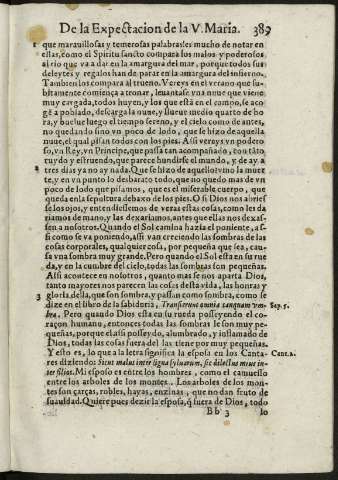 De la Expectacion de la V. Maria. 389
1 que marauillosas y temerosas palabras! es mucho de notar en
ellas, como el Spiritu sancto compara los malos y poderosos
al rio que va a dar en la amargura del mar, porque todos sus
deleytes y regalos han de parar en la amargura del infierno.
Tambien los compara al trueno. Vereys en el verano que su-
bitamente comença a tronar, leuantase vna nuue que viene
muy cargada, todos huyen, y los que està en el campo, se aco-
gẽ a poblado, descarga la nuue, y llueue medio quarto de ho
ra, y buelue luego el tiempo sereno, y el cielo como de antes,
no quedando sino vn poco de lodo, que se hizo de aquella
nuue, el qual pisan todos con los pies. Assi vereys vn podero-
so, vn Rey, vn Principe, que passa tan acompañado, con tãto
ruydo y estruendo, que parece hundirse el mundo, y de ay a
2 tres dias ya no ay nada. Que se hizo de aquello? vino la muer
te, y en vn punto lo desbarato todo, que no quedo mas de vn
poco de lodo que pisamos, que es el miserable cuerpo, que
queda en la sepultura debaxo de los pies. O si Dios nos abries
se los ojos, y entendiessemos de veras estas cosas, como les da
riamos de mano, y las dexariamos, antes que ellas nos dexas-
sen a nosotros. Quando el Sol camina hazia el poniente, assi
como se va poniendo, assi van creciendo las sombras de las
cosas corporales, qualquier cosa, por pequeña que sea, cau-
sa vna sombra muy grande. Pero quando el Sol esta en su rue
da, y en la cumbre del cielo, todas las sombras son pequeñas.
Assi acontece en nosotros, quanto mas se nos aparta Dios,
tanto mayores nos parecen las cosas desta vida, las honras y
3 gloria della, que son sombra, y passan como sombra, como se
dize en el libro de la sabiduria, Transierunt omnia tanquam vm- Sap. 5.
bra. Pero quando Dios esta en su rueda posseyendo el co-
raçon humano, entonces todas las sombras le son muy pe-
queñas, porque el assi posseydo, alumbrado, y inflamado de
Dios, todas las cosas fuera del las tiene por muy pequeñas.
Y esto es, lo que a la letra significa la esposa en los Canta- Cant. 2.
res diziendo: Sicut malus inter ligna syluarum, sic dilectus meus in-
ter filios. Mi esposo es entre los hombres, como el camuesso
entre los arboles de los montes. Los arboles de los mon-
tes son çarças, robles, hayas, enzinas, que no dan fruto de
suauidad. Quiere pues dezir la esposa, q̃ fuera de Dios, todo
Bb 3 lo